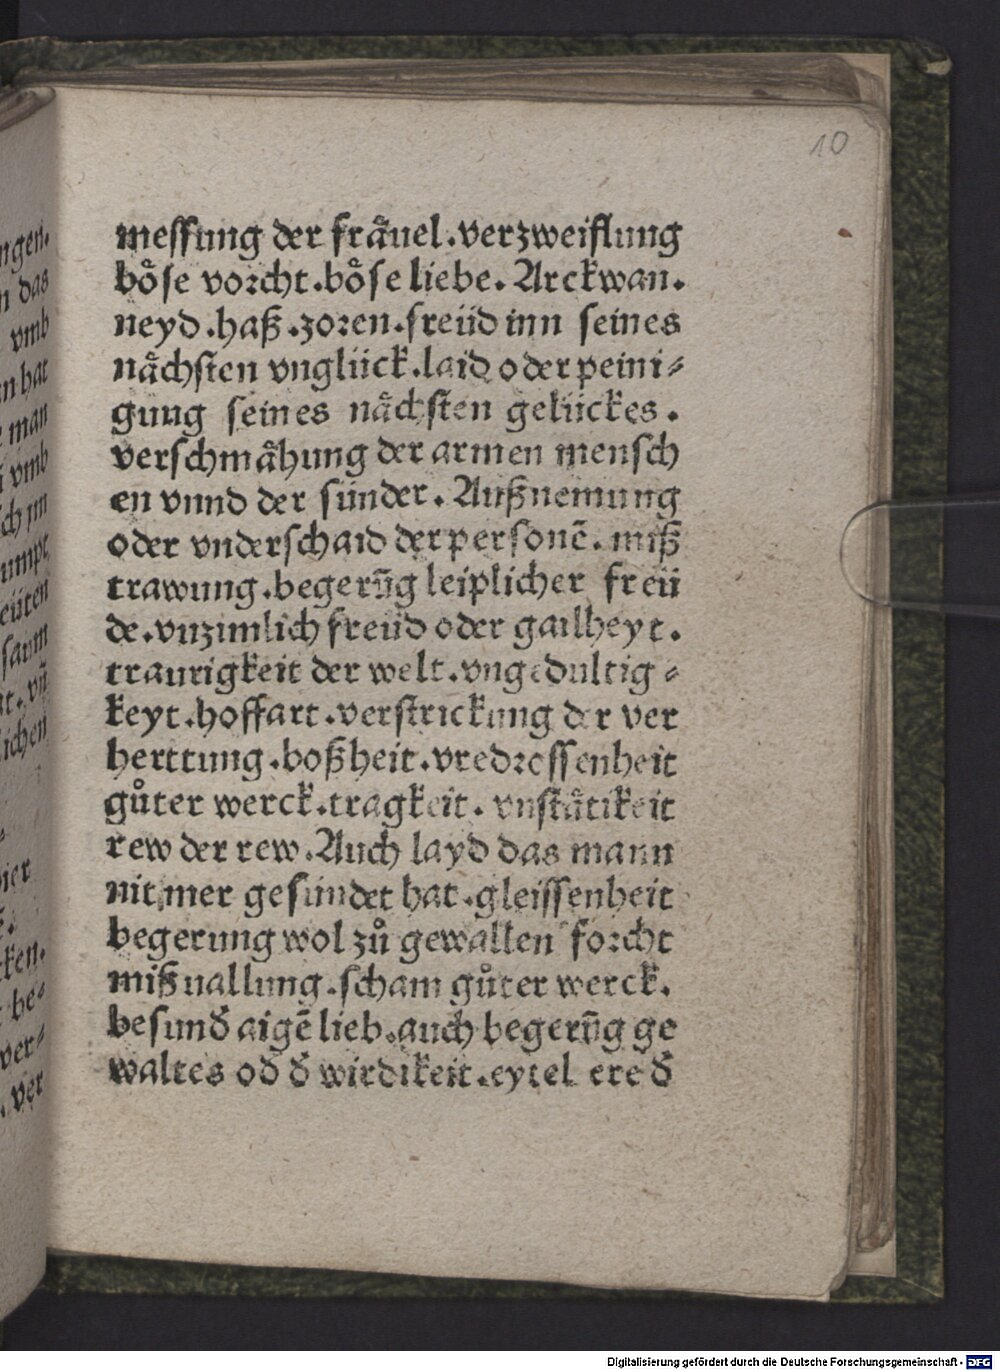 10
messung der fråuel.verzweiflung
bo̊se vorcht.bo̊se liebe. Arckwan.
neyd.haß.zoren.freüd inn seines
nåchsten vnglück.laid oder peini-
gung seines nåchsten gelückes.
verschmåhung der armen mensch
en vnnd der sünder. Außnemung
oder vnderschaid der personē. miß
trawung.begerūg leiplicher freü
de.vnzimlich freüd oder gailheyt.
traurigkeit der welt.vngedultig-
keyt.hoffart.verstrickung der ver
herttung.boßheit.vredrossenheit
gůter werck.tragkeit. vnståtikeit
rew der rew.Auch layd das mann
nit mer gesündet hat.gleissenheit
begerung wol zů gewallen forcht
mißuallung.scham gůter werck.
besund̄ aigē lieb.auch begerūg ge
waltes od̄ d̄ wirdikeit.eytel ere d̄
ngen.
n das
vmb
n hat
man
vmb
ch im
umpt
eüten
saum
t. vn̄
lichen
ier
ken.
be-
ver-
. ver
Digitalisierung gefördert durch die Deutsche Forschungsgemeinschaft - DFG